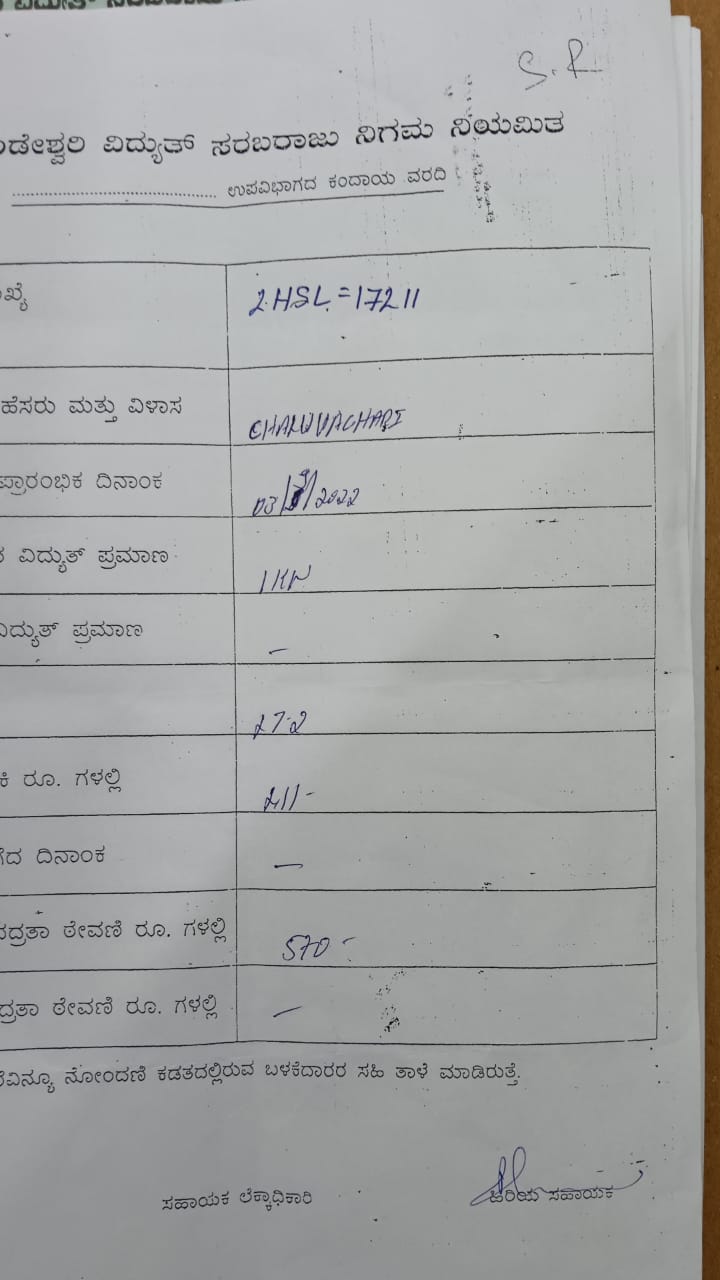 S.R
ಂಡೇಶ್ವರಿ ವಿದ್ಯುತ್ ಸರಬರಾಜು ನಿಗಮ ನಿಯಮಿತ
........................................ ಉಪವಿಭಾಗದ ಕಂದಾಯ ವರದಿ
ಖ್ಯೆ 2HSL=17211
ಹೆಸರು ಮತ್ತು ವಿಳಾಸ CHALUVACHARI
ಪ್ರಾರಂಭಿಕ ದಿನಾಂಕ 03/ /2022
ವಿದ್ಯುತ್ ಪ್ರಮಾಣ 1KW
ವಿದ್ಯುತ್ ಪ್ರಮಾಣ –
LT-2
ಕಿ ರೂ. ಗಳಲ್ಲಿ 211-
ದ ದಿನಾಂಕ –
ದ್ರತಾ ಠೇವಣಿ ರೂ. ಗಳಲ್ಲಿ 570-
ದ್ರತಾ ಠೇವಣಿ ರೂ. ಗಳಲ್ಲಿ –
ವಿನ್ಯೂ ನೋಂದಣಿ ಕಡತದಲ್ಲಿರುವ ಬಳಕೆದಾರರ ಸಹಿ ತಾಳೆ ಮಾಡಿರುತ್ತೆ.
ಸಹಾಯಕ ಲೆಕ್ಕಾಧಿಕಾರಿ ಹಿರಿಯ ಸಹಾಯಕ